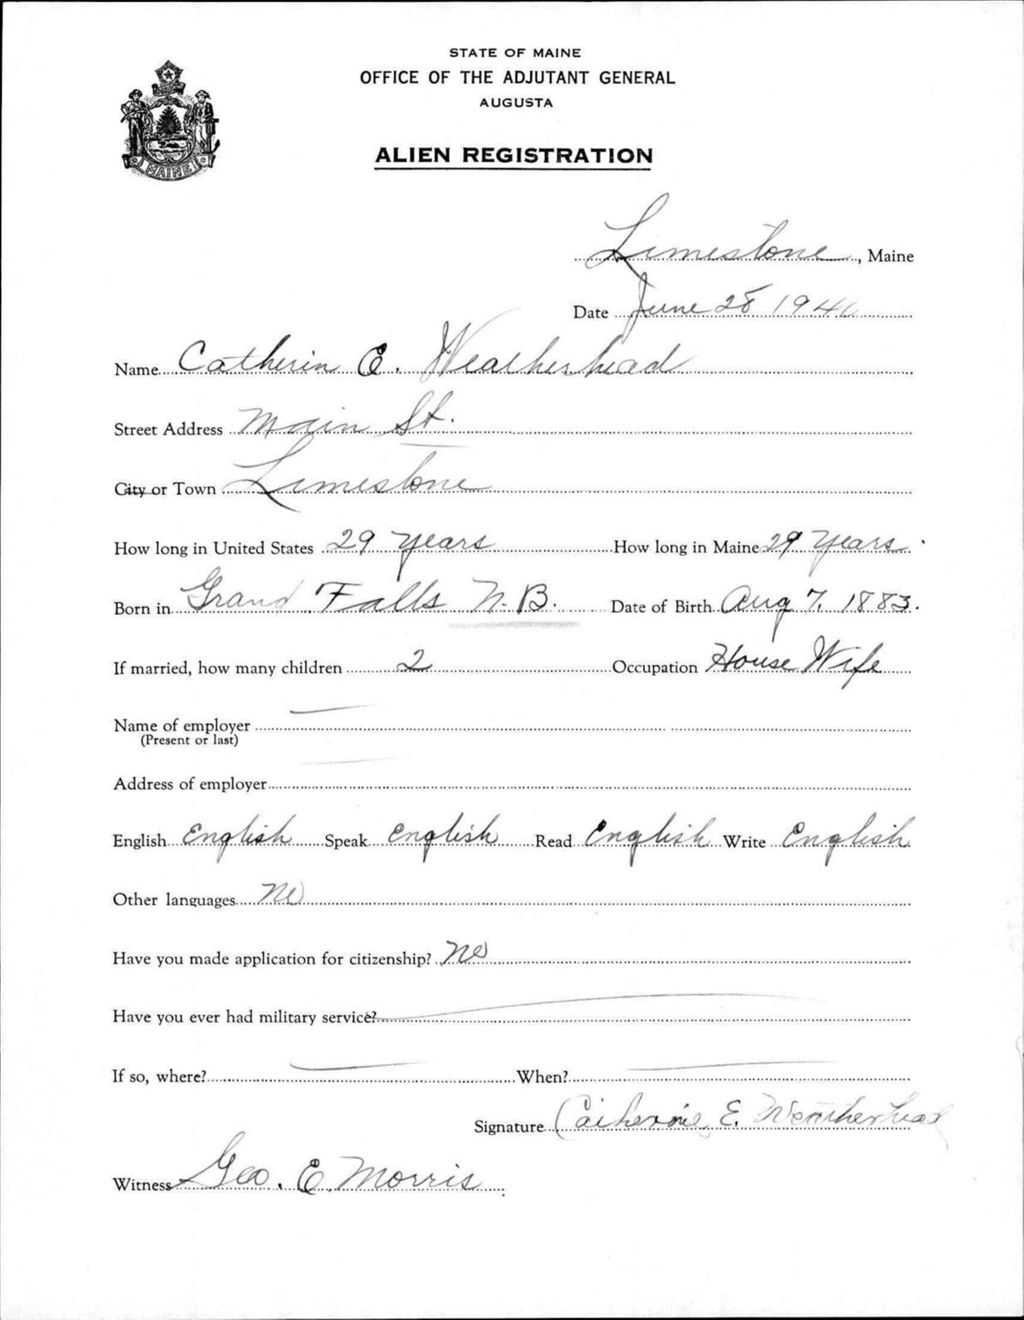 STATE OF MAINE
OFFICE OF THE ADJUTANT GENERAL
AUGUSTA
ALIEN REGISTRATION
MAINE
Limestone, Maine
Date June 28 1940
Name Catherin E. Weatherhead
Street Address Main St.
City or Town Limestone
How long in United States 29 years How long in Maine 29 years.
Born in Grand Falls N.B. Date of Birth Aug 7, 1883.
If married, how many children 2 Occupation House Wife
Name of employer —
(Present or last)
Address of employer —
English English Speak English Read English Write English
Other languages No
Have you made application for citizenship? No
Have you ever had military service? —
If so, where? — When? —
Signature Catherine E. Weatherhead
Witness Geo. E. Morris